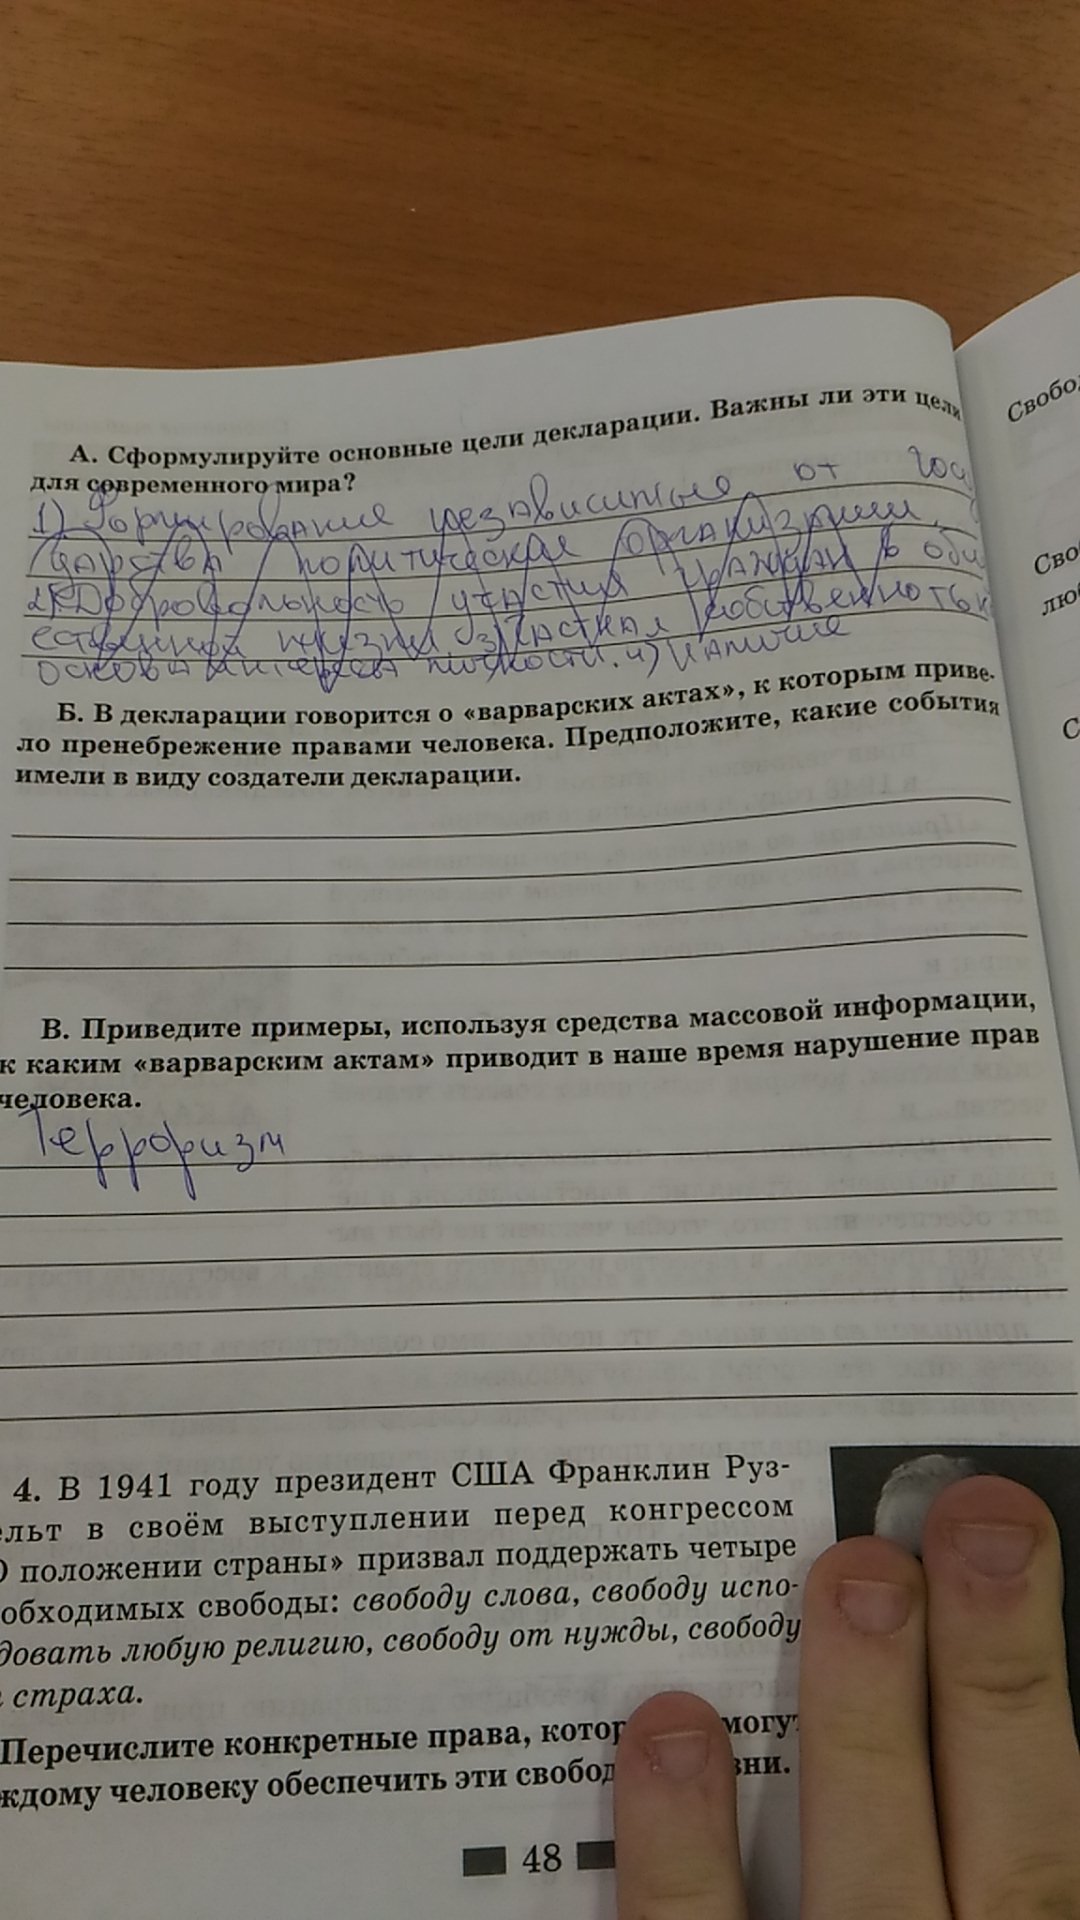 А. Сформулируйте основные цели декларации. Важны ли эти цели
для современного мира?
1) Формирование независимые от госу
дарства политической организации
2) Добровольность участия граждан в общ
ественной жизни 3) Частная собственность к
основа интереса личности. 4) Наличие
Б. В декларации говорится о «варварских актах», к которым приве-
ло пренебрежение правами человека. Предположите, какие события
имели в виду создатели декларации.
В. Приведите примеры, используя средства массовой информации,
к каким «варварским актам» приводит в наше время нарушение прав
человека.
Терроризм
4. В 1941 году президент США Франклин Руз-
ельт в своём выступлении перед конгрессом
О положении страны» призвал поддержать четыре
обходимых свободы: свободу слова, свободу испо-
довать любую религию, свободу от нужды, свободу
страха.
Перечислите конкретные права, которые могут
ждому человеку обеспечить эти свобод зни.
48
Свобод
Сво
люб
С